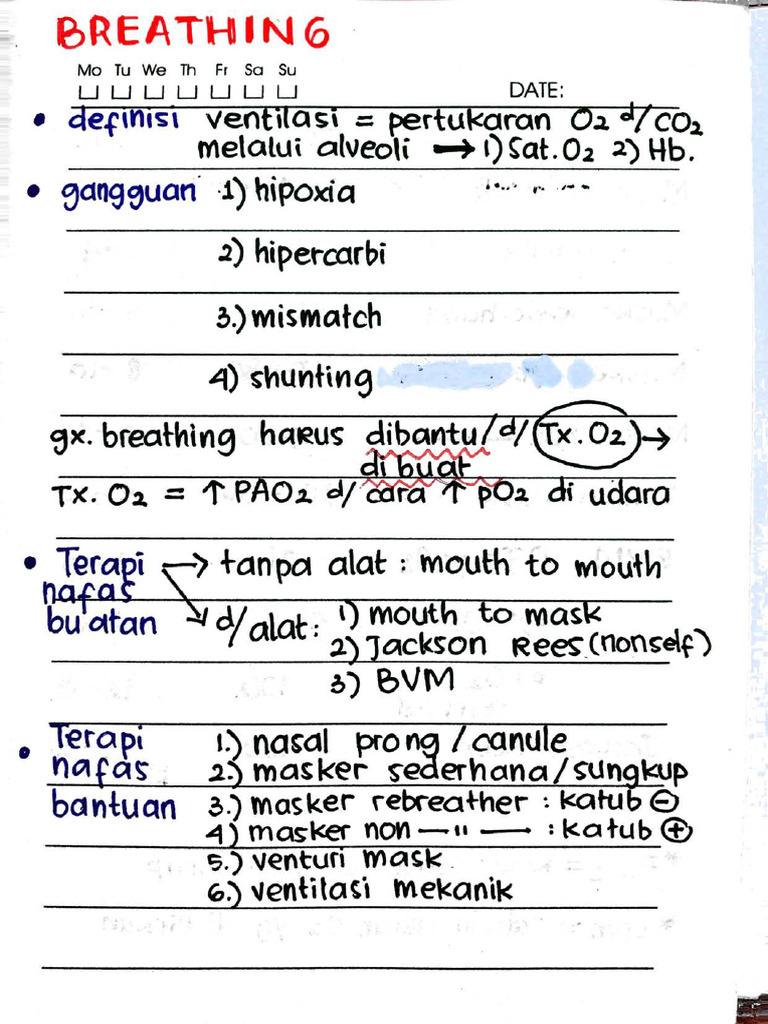 BREATHING
Mo Tu We Th Fr Sa Su
DATE:
• definisi ventilasi = pertukaran O2 d/ CO2
melalui alveoli → 1) Sat. O2 2) Hb.
• gangguan 1) hipoxia
2) hipercarbi
3.) mismatch
4) shunting
gx. breathing harus dibantu/ d/ Tx. O2 →
dibuat
Tx. O2 = ↑ PAO2 d/ cara ↑ pO2 di udara
• Terapi → tanpa alat : mouth to mouth
nafas
buatan d/ alat : 1) mouth to mask
2) Jackson Rees (nonself)
3) BVM
• Terapi 1.) nasal prong / canule
nafas 2.) masker sederhana / sungkup
bantuan 3.) masker rebreather : katub ⊖
4) masker non — " — : katub ⊕
5.) venturi mask
6.) ventilasi mekanik